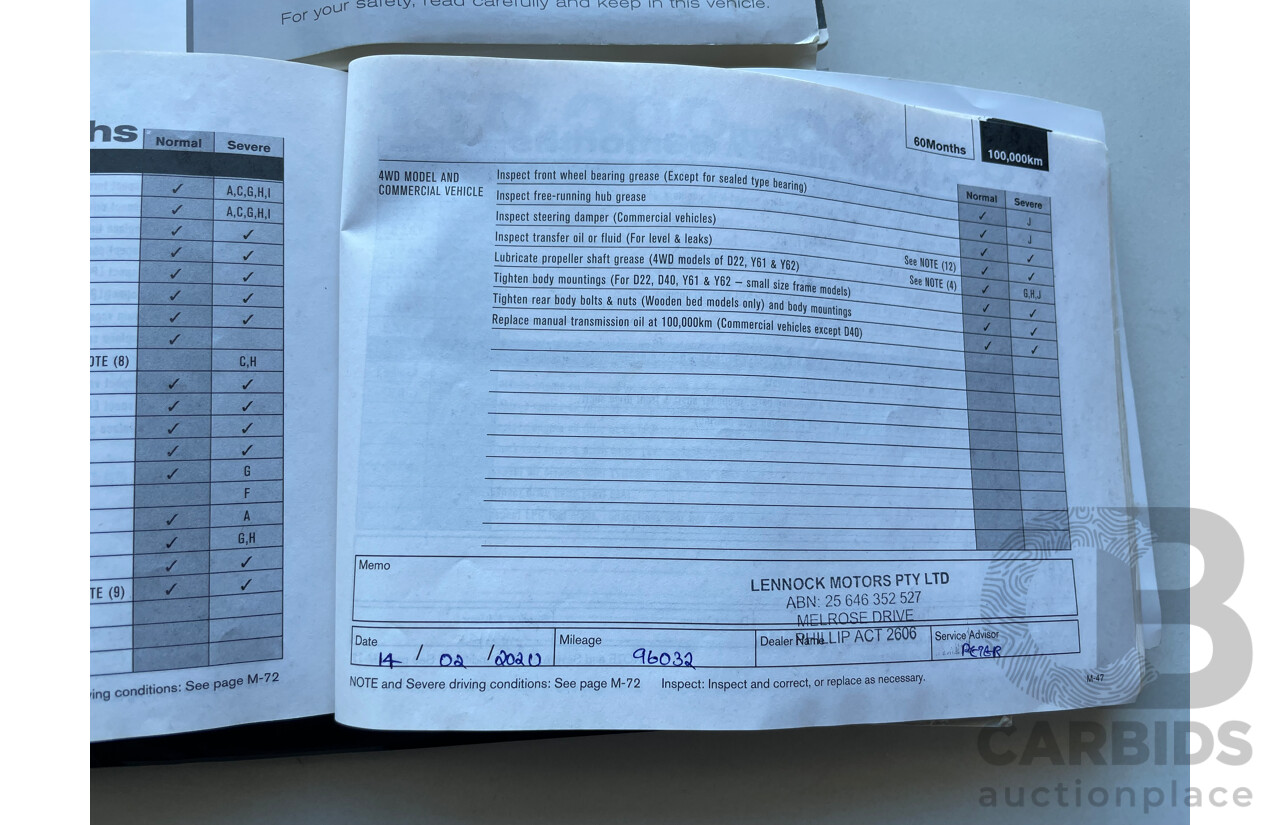 For your safety, read carefully and keep in this vehicle.
hs Normal Severe
✓ A,C,G,H,I
✓ A,C,G,H,I
✓ ✓
✓ ✓
✓ ✓
✓ ✓
✓ ✓
✓
OTE (8) C,H
✓ ✓
✓ ✓
✓ ✓
✓ ✓
✓ G
F
✓ A
✓ G,H
✓ ✓
TE (9) ✓ ✓
ving conditions: See page M-72
60Months 100,000km
Normal Severe
4WD MODEL AND
COMMERCIAL VEHICLE
Inspect front wheel bearing grease (Except for sealed type bearing) ✓ J
Inspect free-running hub grease ✓ J
Inspect steering damper (Commercial vehicles) ✓ ✓
Inspect transfer oil or fluid (For level & leaks) See NOTE (12) ✓ ✓
Lubricate propeller shaft grease (4WD models of D22, Y61 & Y62) See NOTE (4) ✓ G,H,J
Tighten body mountings (For D22, D40, Y61 & Y62 – small size frame models) ✓ ✓
Tighten rear body bolts & nuts (Wooden bed models only) and body mountings ✓ ✓
Replace manual transmission oil at 100,000km (Commercial vehicles except D40) ✓ ✓
Memo
LENNOCK MOTORS PTY LTD
ABN: 25 646 352 527
MELROSE DRIVE
PHILLIP ACT 2606
Date 14 / 02 /
Mileage 96032
Dealer Name
Service Advisor PETER
NOTE and Severe driving conditions: See page M-72 Inspect: Inspect and correct, or replace as necessary.
M-47
CB
CARBIDS
auctionplace